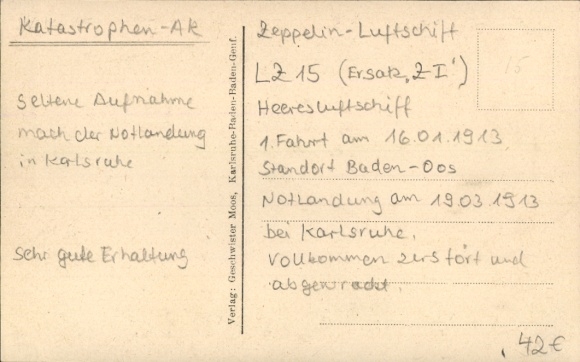 Katastrophen-AK
seltene Aufnahme
nach der Notlandung
in Karlsruhe
sehr gute Erhaltung
Verlag: Geschwister Moos, Karlsruhe-Baden-Baden-Genf.
Zeppelin-Luftschiff
LZ 15 (Ersatz "Z I")
15
Heeresluftschiff
1. Fahrt am 16.01.1913
Standort Baden-Oos
Notlandung am 19.03.1913
bei Karlsruhe.
vollkommen zerstört und
abgewrackt.
42€